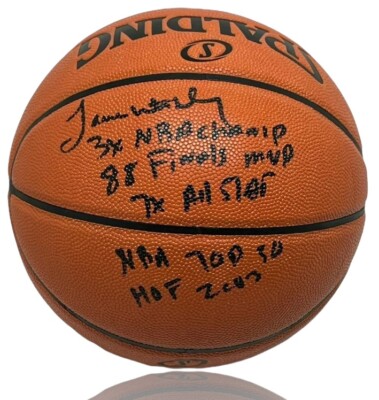 SPALDING
S
James Worthy
3x NBA Champ
88 Finals MVP
7x All Star
NBA TOP 50
HOF 2003